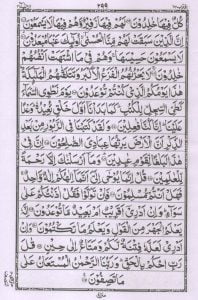 ۲۵۹
كُلٌّ فِيهَا خٰلِدُونَ لَهُمْ فِيهَا زَفِيرٌ وَّهُمْ فِيهَا لَا يَسْمَعُونَ
اِنَّ الَّذِينَ سَبَقَتْ لَهُمْ مِّنَّا الْحُسْنٰىٓ اُولٰٓئِكَ عَنْهَا مُبْعَدُونَ
لَا يَسْمَعُونَ حَسِيسَهَا وَهُمْ فِي مَا اشْتَهَتْ اَنْفُسُهُمْ
خٰلِدُونَ لَا يَحْزُنُهُمُ الْفَزَعُ الْاَكْبَرُ وَتَتَلَقّٰىهُمُ الْمَلٰٓئِكَةُ
هٰذَا يَوْمُكُمُ الَّذِي كُنْتُمْ تُوعَدُونَ يَوْمَ نَطْوِي السَّمَآءَ
كَطَيِّ السِّجِلِّ لِلْكُتُبِ كَمَا بَدَاْنَآ اَوَّلَ خَلْقٍ نُّعِيدُهٗ وَعْدًا
عَلَيْنَا اِنَّا كُنَّا فٰعِلِينَ وَلَقَدْ كَتَبْنَا فِي الزَّبُورِ مِنْۢ بَعْدِ
الذِّكْرِ اَنَّ الْاَرْضَ يَرِثُهَا عِبَادِيَ الصّٰلِحُونَ اِنَّ فِي
هٰذَا لَبَلٰغًا لِّقَوْمٍ عٰبِدِينَ وَمَآ اَرْسَلْنٰكَ اِلَّا رَحْمَةً
لِّلْعٰلَمِينَ قُلْ اِنَّمَا يُوحٰىٓ اِلَيَّ اَنَّمَآ اِلٰهُكُمْ اِلٰهٌ وَّاحِدٌ
فَهَلْ اَنْتُمْ مُّسْلِمُونَ فَاِنْ تَوَلَّوْا فَقُلْ اٰذَنْتُكُمْ عَلٰى
سَوَآءٍ وَاِنْ اَدْرِيٓ اَقَرِيبٌ اَمْ بَعِيدٌ مَّا تُوعَدُونَ اِنَّهٗ
يَعْلَمُ الْجَهْرَ مِنَ الْقَوْلِ وَيَعْلَمُ مَا تَكْتُمُونَ وَاِنْ
اَدْرِي لَعَلَّهٗ فِتْنَةٌ لَّكُمْ وَمَتَاعٌ اِلٰى حِينٍ قٰلَ
رَبِّ احْكُمْ بِالْحَقِّ وَرَبُّنَا الرَّحْمٰنُ الْمُسْتَعَانُ عَلٰى
مَا تَصِفُونَ